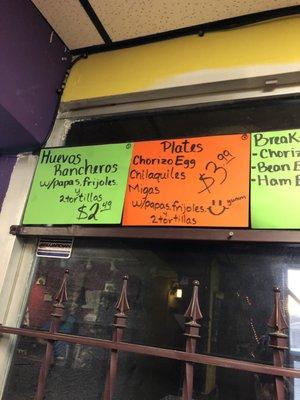 Huevos Rancheros
w/papas, frijoles,
y
2 tortillas
$2.49
Plates
Chorizo Egg
Chilaquiles
Migas
w/papas, frijoles
y
2 tortillas
$3.99
yumm
Break
-Choriz
-Bean E
-Ham E